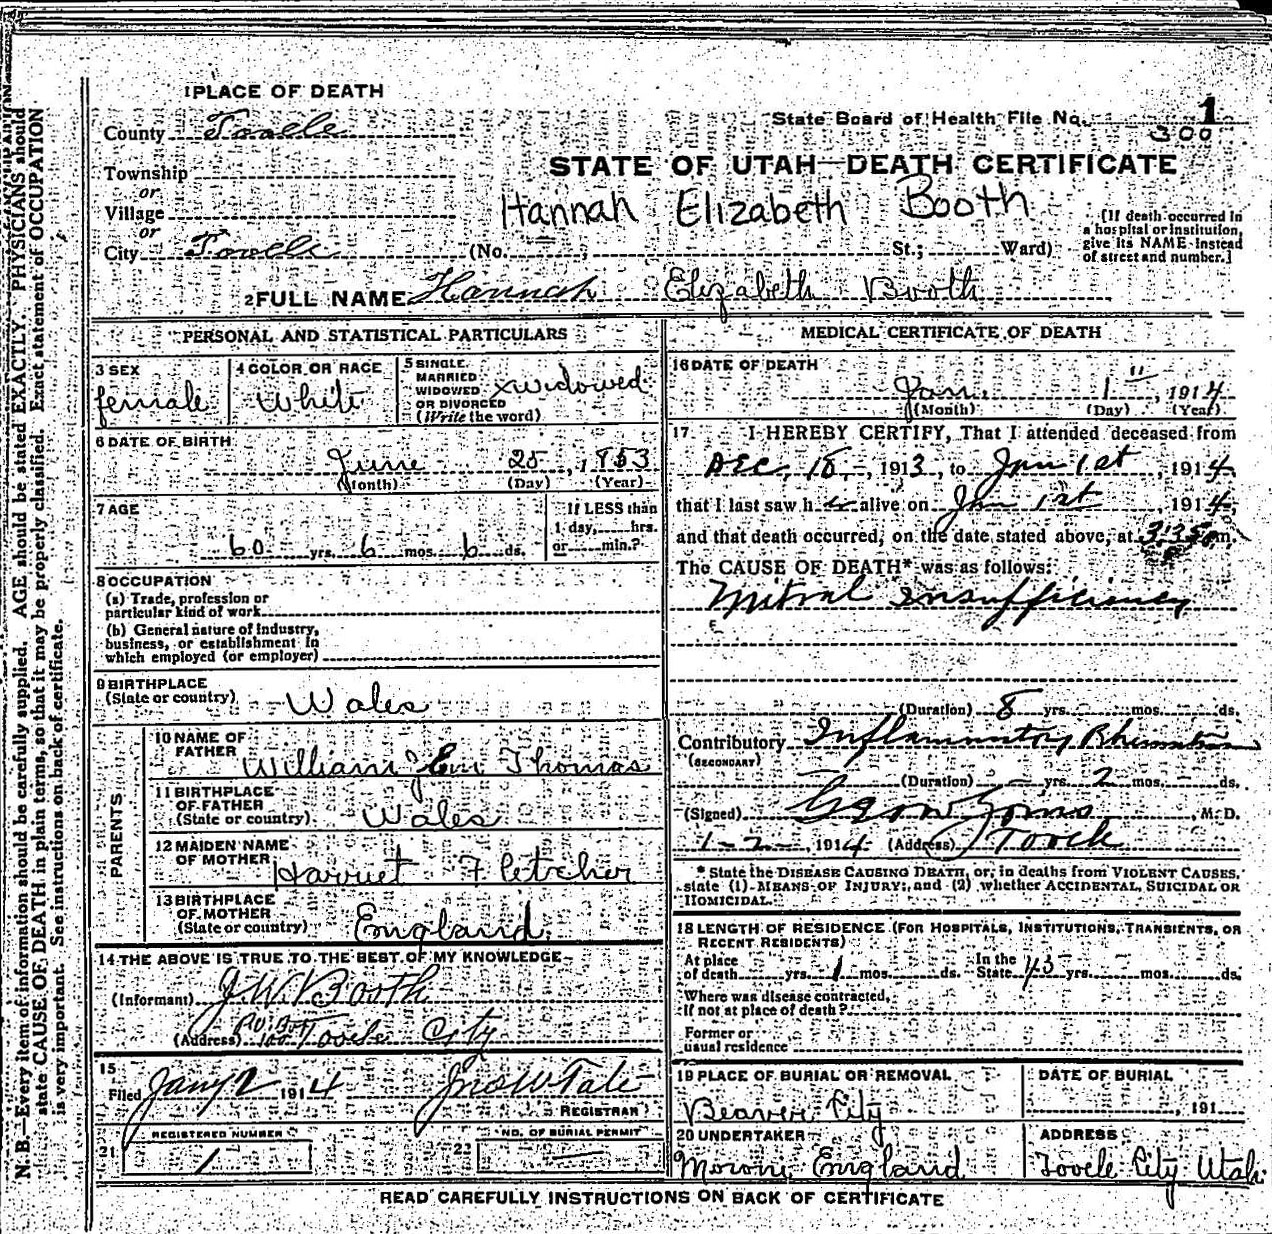 1 PLACE OF DEATH
County Tooele
State Board of Health File No. 1
300
Township
or
Village
or
City Tooele (No. St.; Ward)
STATE OF UTAH—DEATH CERTIFICATE
Hannah Elizabeth Booth
[If death occurred in
a hospital or institution,
give its NAME instead
of street and number.]
2 FULL NAME Hannah Elizabeth Booth
PERSONAL AND STATISTICAL PARTICULARS
3 SEX
female
4 COLOR OR RACE
White
5 SINGLE,
MARRIED
WIDOWED
OR DIVORCED
(Write the word)
widowed
6 DATE OF BIRTH
June 25, 1853
(Month) (Day) (Year)
7 AGE
60 yrs. 6 mos. 6 ds.
If LESS than
1 day, hrs.
or min.?
8 OCCUPATION
(a) Trade, profession or
particular kind of work
(b) General nature of industry,
business, or establishment in
which employed (or employer)
9 BIRTHPLACE
(State or country) Wales
PARENTS
10 NAME OF
FATHER William Thomas
11 BIRTHPLACE
OF FATHER
(State or country) Wales
12 MAIDEN NAME
OF MOTHER Harriet Fletcher
13 BIRTHPLACE
OF MOTHER
(State or country) England.
14 THE ABOVE IS TRUE TO THE BEST OF MY KNOWLEDGE
(Informant) J.W. Booth
(Address) Tooele City
15
Filed Jany 2 1914 Jno W Tate
REGISTRAR
REGISTERED NUMBER
21 1
NO. OF BURIAL PERMIT
22
MEDICAL CERTIFICATE OF DEATH
16 DATE OF DEATH
Jan. 1", 1914
(Month) (Day) (Year)
17 I HEREBY CERTIFY, That I attended deceased from
Dec. 18, 1913, to Jan 1st, 1914,
that I last saw h alive on Jan 1st 1914,
and that death occurred, on the date stated above, at 3:35 m.
The CAUSE OF DEATH* was as follows:
Mitral insufficiency
(Duration) 8 yrs. mos. ds.
Contributory Inflammatory Rheumatism
(SECONDARY)
(Duration) yrs. 2 mos. ds.
(Signed) M. D.
1-2-, 1914 (Address) Tooele
* State the DISEASE CAUSING DEATH, or, in deaths from VIOLENT CAUSES,
state (1) MEANS OF INJURY; and (2) whether ACCIDENTAL, SUICIDAL OR
HOMICIDAL.
18 LENGTH OF RESIDENCE (FOR HOSPITALS, INSTITUTIONS, TRANSIENTS, OR
RECENT RESIDENTS)
At place
of death yrs. 1 mos. ds. In the
State 43 yrs. mos. ds.
Where was disease contracted,
if not at place of death?
Former or
usual residence
19 PLACE OF BURIAL OR REMOVAL
Beaver City
DATE OF BURIAL
, 191
20 UNDERTAKER
England
ADDRESS
Tooele City Utah.
READ CAREFULLY INSTRUCTIONS ON BACK OF CERTIFICATE
N. B.—Every item of information should be carefully supplied. AGE should be stated EXACTLY. PHYSICIANS should
state CAUSE OF DEATH in plain terms, so that it may be properly classified. Exact statement of OCCUPATION
is very important. See instructions on back of certificate.